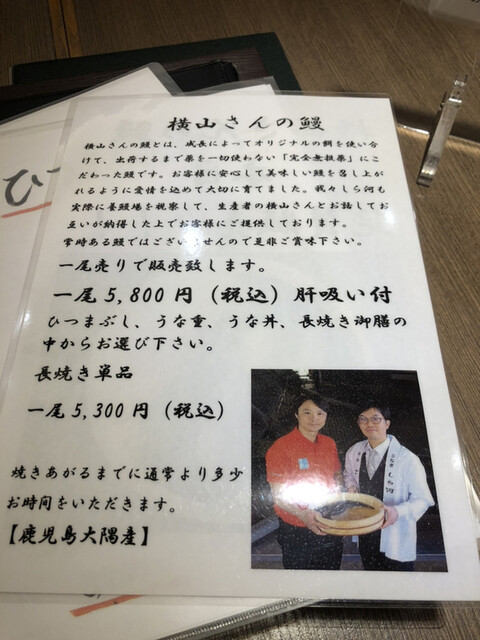 横山さんの鰻
横山さんの鰻とは、成長によってオリジナルの餌を使い分
けて、出荷するまで薬を一切使わない「完全無投薬」にこ
だわった鰻です。お客様に安心して美味しい鰻を召し上が
れるように愛情を込めて大切に育てました。我々しら河も
実際に養鰻場を視察して、生産者の横山さんとお話してお
互いが納得した上でお客様にご提供しております。
常時ある鰻ではございませんので是非ご賞味下さい。
一尾売りで販売致します。
一尾5,800円（税込）肝吸い付
ひつまぶし、うな重、うな丼、長焼き御膳の
中からお選び下さい。
長焼き単品
一尾5,300円（税込）
焼きあがるまでに通常より多少
お時間をいただきます。
【鹿児島大隅産】
ひつ